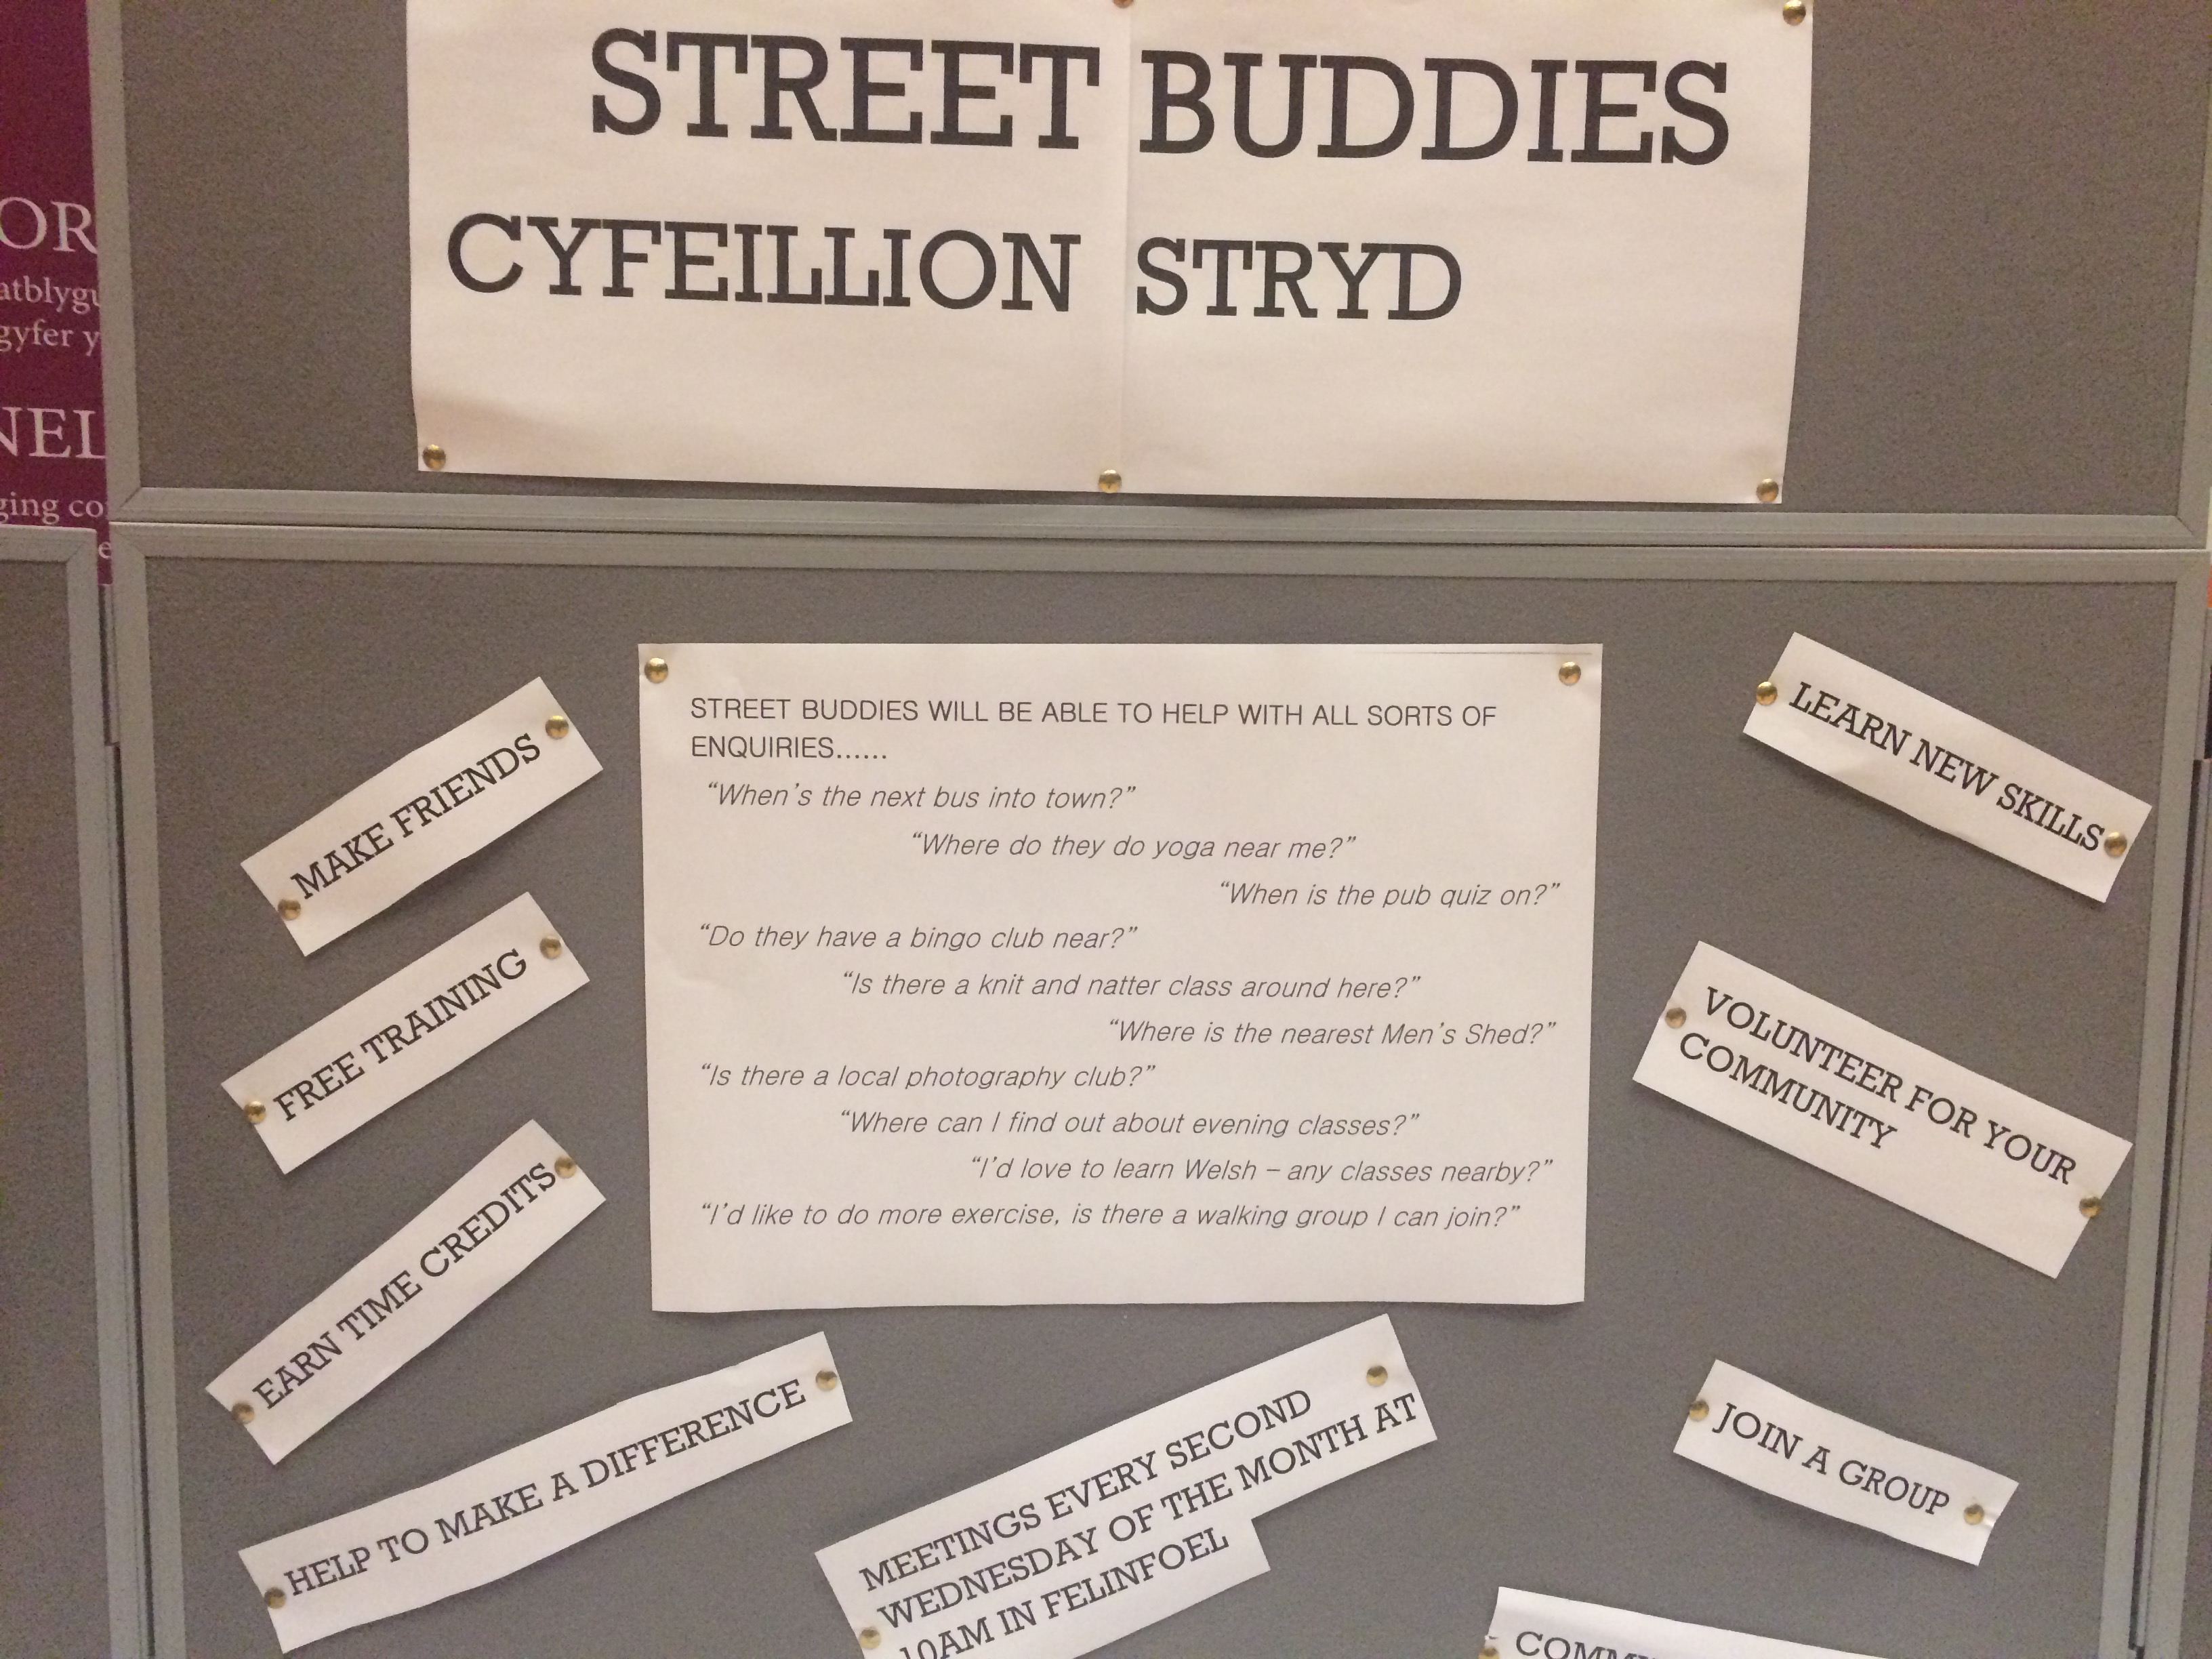 STREET BUDDIES
CYFEILLION STRYD
STREET BUDDIES WILL BE ABLE TO HELP WITH ALL SORTS OF
ENQUIRIES......
“When’s the next bus into town?”
“Where do they do yoga near me?”
“When is the pub quiz on?”
“Do they have a bingo club near?”
“Is there a knit and natter class around here?”
“Where is the nearest Men’s Shed?”
“Is there a local photography club?”
“Where can I find out about evening classes?”
“I’d love to learn Welsh – any classes nearby?”
“I’d like to do more exercise, is there a walking group I can join?”
MAKE FRIENDS
FREE TRAINING
EARN TIME CREDITS
HELP TO MAKE A DIFFERENCE
MEETINGS EVERY SECOND
WEDNESDAY OF THE MONTH AT
10AM IN FELINFOEL
LEARN NEW SKILLS
VOLUNTEER FOR YOUR
COMMUNITY
JOIN A GROUP
OR
gyfer y
NEL
ging co